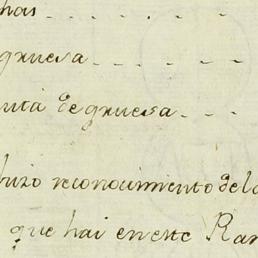 has
gruesa
uta de gruesa
hizo reconocimiento de la
que hai en este Ram